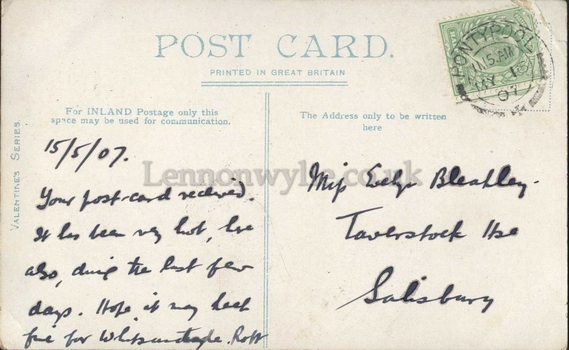 POST CARD.
PRINTED IN GREAT BRITAIN
For INLAND Postage only this
space may be used for communication.
The Address only to be written
here
VALENTINES SERIES.
PONTYPOOL
AM
MY
07
Lennonwylie.co.uk
15/5/07.
Your post-card received.
It has been very hot, here
also, during the last few
days. Hope it may keep
fine for Whitsuntide.
Miss Evelyn Bleathley.
Taverstock Hse
Salisbury